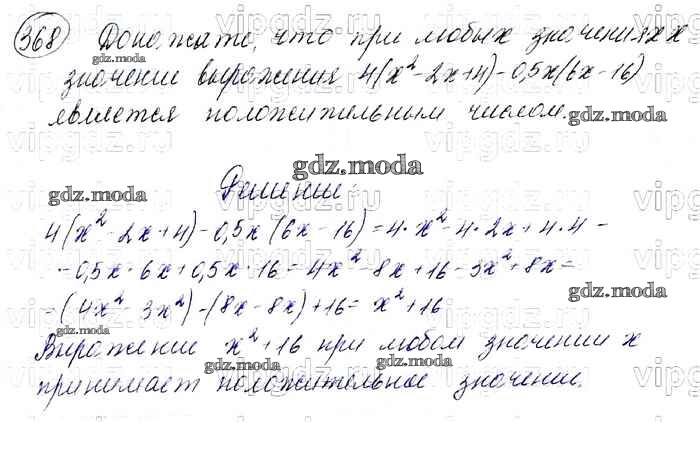 368 Докажите, что при любых значениях x
значение выражения 4(x² - 2x+4) - 0,5x(6x - 16)
является положительным числом.
Решение:
4(x² - 2x+4) - 0,5x(6x - 16) = 4·x² - 4·2x + 4·4 -
- 0,5x·6x + 0,5x·16 = 4x² - 8x + 16 - 3x² + 8x =
= (4x² - 3x²) - (8x - 8x) + 16 = x² + 16
Выражение x² + 16 при любом значении x
принимает положительное значение.
gdz.moda
vipgdz.ru